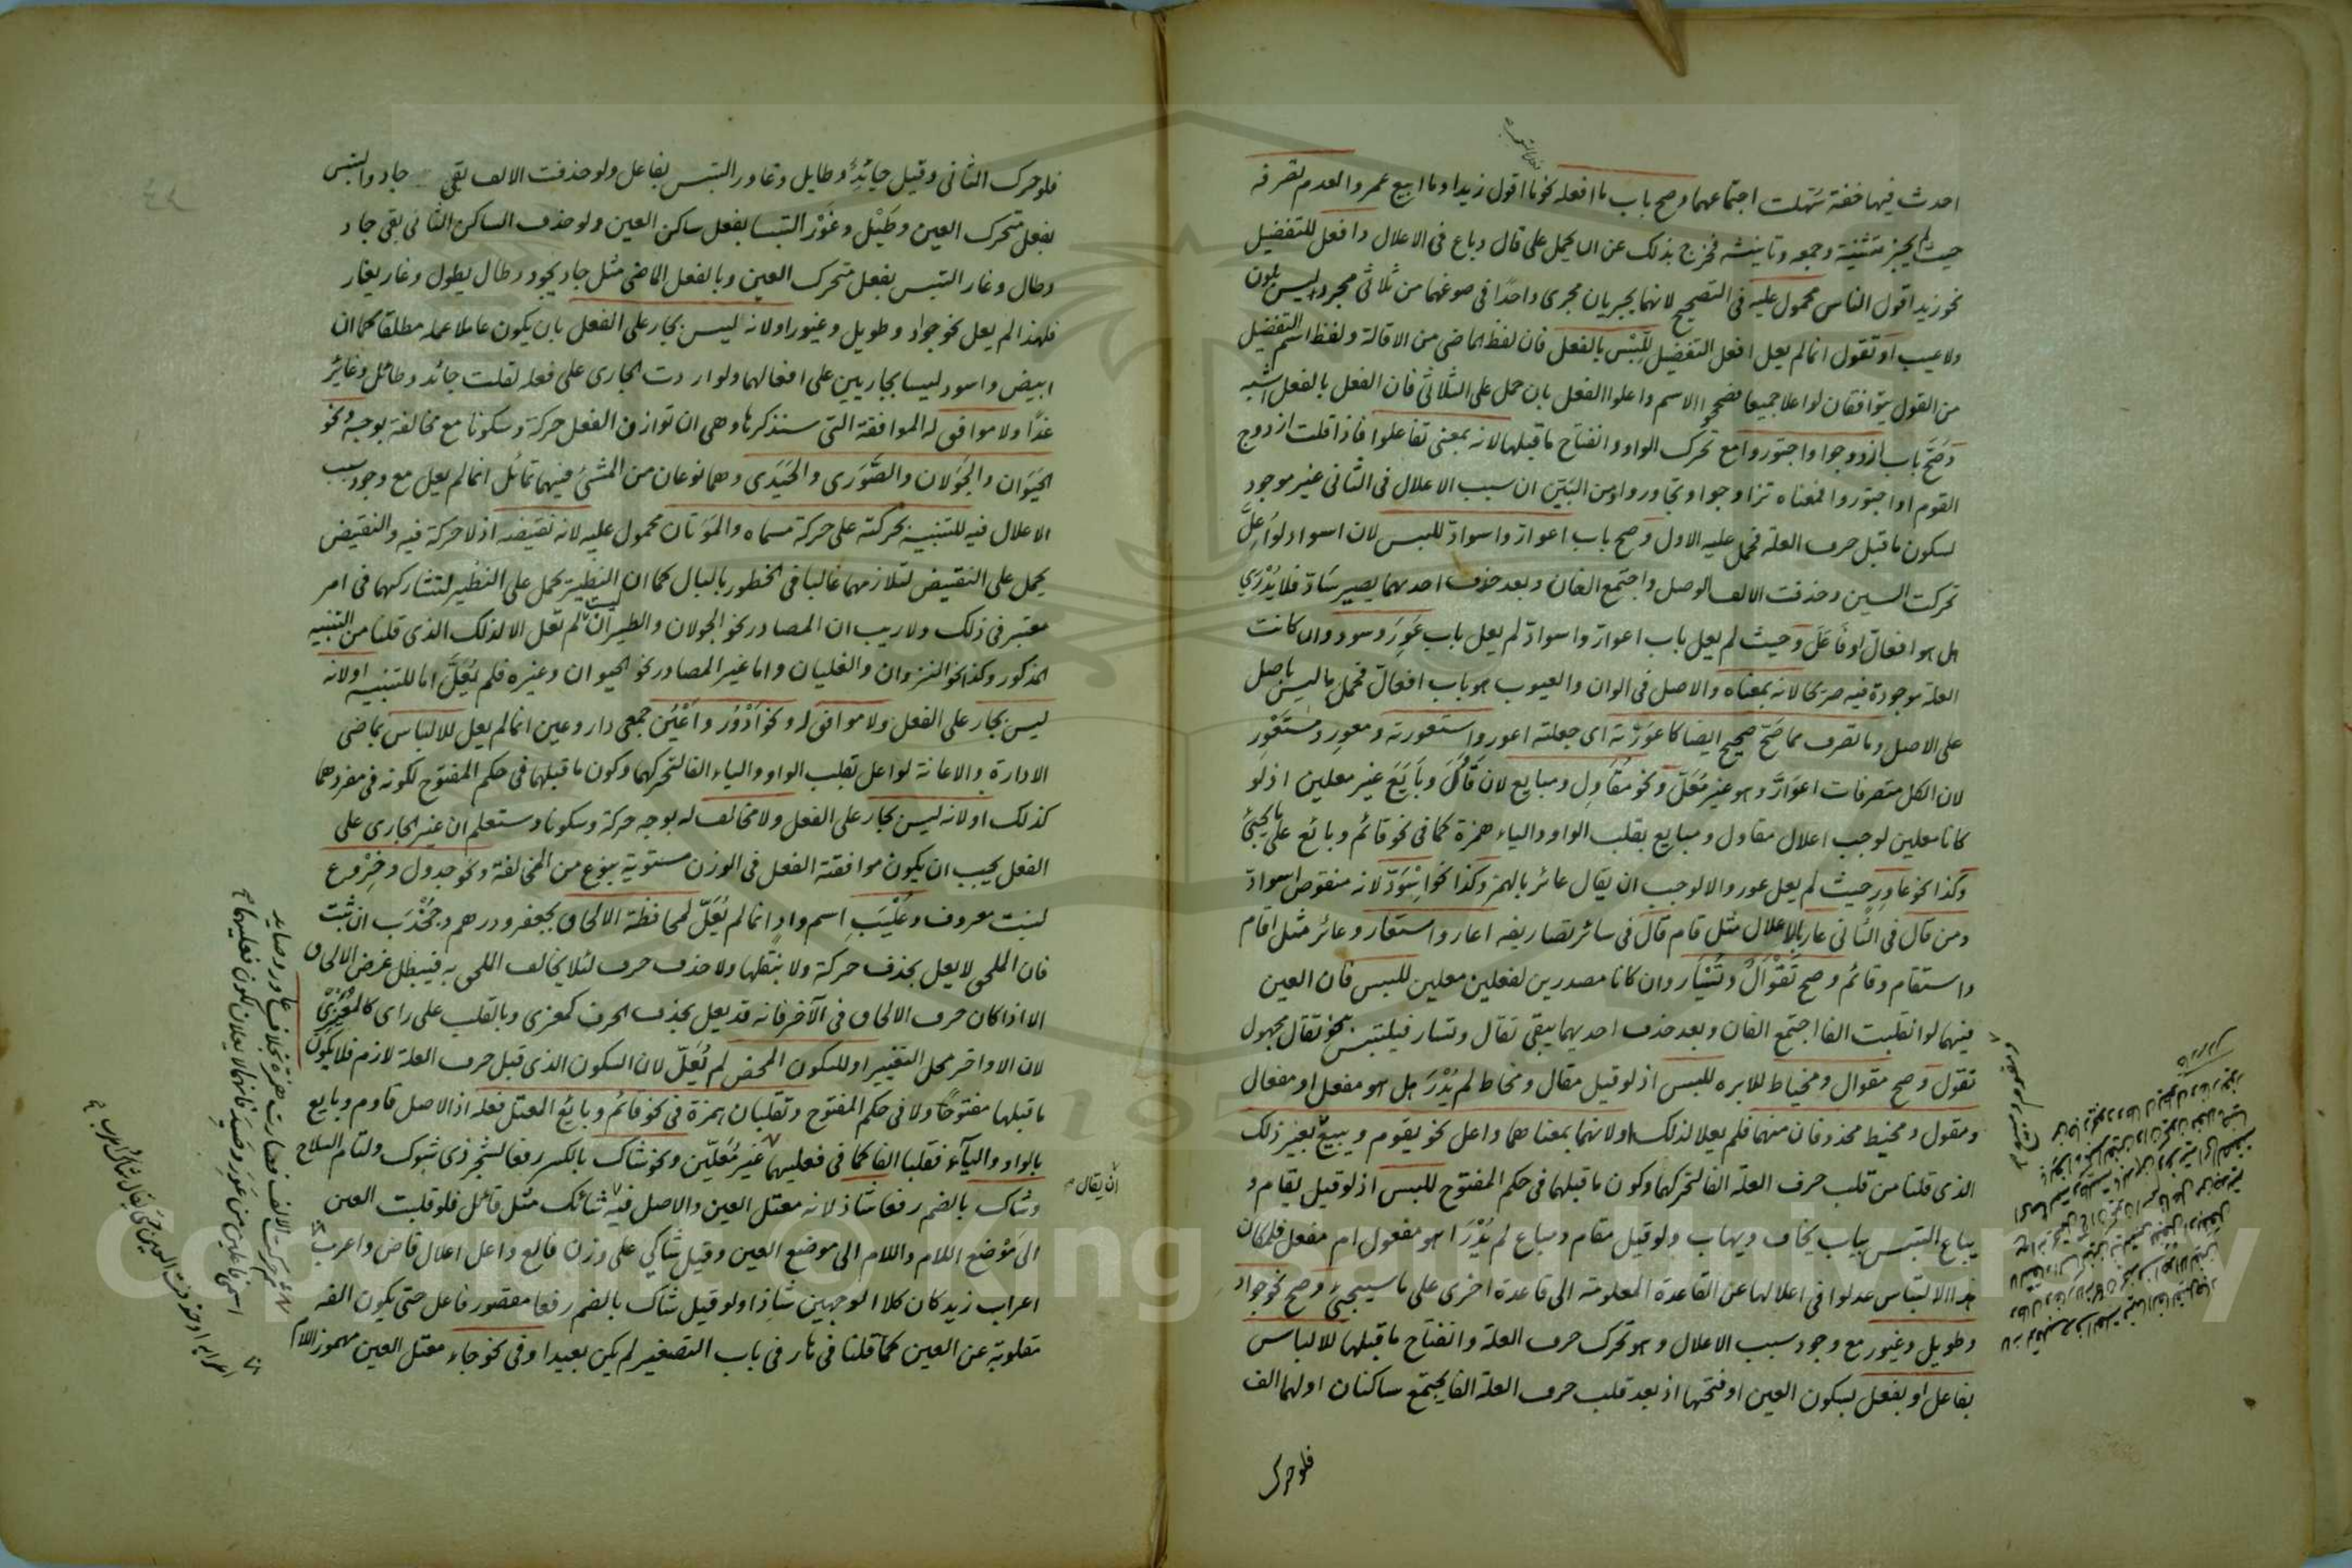 احدث فيها خفة سهلت اجتماعهما وصح باب ما افعله نحو ما اقول زيدا وما ابيع عمروا لعدم تصرفه
حيث لم يجز تثنيته وجمعه وتانيثه فخرج بذلك عن ان يحمل على قال وباع فى الاعلال وافعل للتفضيل
نحو زيد اقول الناس محمول عليه فى التصحيح لانهما يجريان مجرى واحدًا فى صوغهما من ثلاثى مجرد ليس بلون
ولا عيب او تقول انما لم يعل افعل التفضيل لِلَّبْس بالفعل فان لفظ الماضى من الاقالة ولفظ اسم التفضيل
من القول يتوافقان لو اعلا جميعا فصححوا الاسم واعلوا الفعل بان حمل على الثلاثى فان الفعل بالفعل اشبه
وَصَحَّ باب ازدوجوا واجتوروا مع تحرك الواو وانفتاح ما قبلها لانه بمعنى تفاعلوا فاذا قلت ازدوج
القوم او اجتوروا فمعناه تزاوجوا وتجاوروا ومن البَيّن ان سبب الاعلال فى الثانى غير موجود
لسكون ما قبل حرف العلة فحمل عليه الاول وصح باب اعوارّ واسوادّ للبس لان اسوادّ لو اُعِلّ
تحركت السين وحذفت الالف الوصل واجتمع الفان وبعد حذف احديهما يصير سَادّ فلا يُدْرَى
هل هو افعالّ او فَاعَلَ وحيث لم يعل باب اعوارّ واسوادّ لم يعل باب عَوِرَ وسود وان كانت
العلة موجودة فيه صريحا لانه بمعناه والاصل فى الوان والعيوب هو باب افعالّ فحمل ما ليس باصل
على الاصل وما تصرف مما صَحّ صحيح ايضا كاعوَرْته اى جعلته اعور واستعورته ومعور ومستَعْوِر
لان الكل متصرفات اعوَارَّ وهو غير مُعَلّ ونحو مُقَاوِل ومبايع لان قَاوَلَ وبَايَعَ غير معلين اذ لو
كانا معلين لوجب اعلال مقاول ومبايع بقلب الواو والياء همزة كما فى نحو قائم وبائع على ما يجيئ
وكذا نحو عاوِر حيث لم يعل عور والا لوجب ان يقال عائر بالهمز وكذا نحو اِسْوَدّ لانه منقوص اسوادّ
ومن قال فى الثانى عار بالاعلال مثل قام قال فى سائر تصاريفه اعار واستعار وعائر مثل اقام
واستقام وقائم وصح تَقْوَالٌ وتَسْيَار وان كانا مصدرين لفعلين معلين للبس فان العين
فيهما لو انقلبت الفا اجتمع الفان وبعد حذف احديهما يبقى تقال وتسار فيلتبس بنحو تقال مجهول
تقول وصح مقوال ومخياط للابره للبس اذ لو قيل مقال ومخاط لم يُدْرَ هل هو مفعل او مفعال
ومقول ومخيط محذوفان منهما فلم يعلا لذلك او لانهما بمعناهما واعل نحو يقوم ويبيع بغير ذلك
الذى قلنا من قلب حرف العلة الفا لتحركها وكون ما قبلها فى حكم المفتوح للبس اذ لو قيل يقام و
يباع التبس بباب يخاف ويهاب ولو قيل مقام ومباع لم يُدْرَ اهو مفعول ام مفعل فلمكان
هذا الالتباس عدلوا فى اعلالها عن القاعدة المعلومة الى قاعدة اخرى على ما سيجيئ وصح نحو جواد
وطويل وغيور مع وجود سبب الاعلال وهو تحرك حرف العلة وانفتاح ما قبلها للالباس
بفاعل او بفعل بسكون العين او فتحها اذ بعد قلب حرف العلة الفا يجتمع ساكنان اولهما الف
فلو حرك
فلو حرك الثانى وقيل جائد وطايل وغاور التبس بفاعل ولو حذفت الالف بقى جاد والتبس
بفعل متحرك العين وطَيْل وغَوْر التبسا بفعل ساكن العين ولو حذف الساكن الثانى بقى جاد
وطال وغار التبس بفعل متحرك العين وبالفعل الماضى مثل جاد يجود وطال يطول وغار يغار
فلهذا لم يعل نحو جواد وطويل وغيور او لانه ليس بجار على الفعل بان يكون عاملا عمله مطلقا كما ان
ابيض واسود ليسا بجاريين على افعالهما ولو اردت الجارى على فعله لقلت جائد وطائل وغائر
غدًا ولا موافق له الموافقة التى سنذكرها وهى ان توازن الفعل حركة وسكونا مع مخالفة بوجه ونحو
الحَيَوان والجَوَلان والصَّوَرى والحَيَدَى وهما نوعان من المشى فيهما تمائل انما لم يعل مع وجود سبب
الاعلال فيه للتنبيه بحركته على حركة مسماه والمَوَتان محمول عليه لانه نقيضه اذ لا حركة فيه والنقيض
يحمل على النقيض لتلازمهما غالبا فى الخطور بالبال كما ان النظير يحمل على النظير لتشاركهما فى امر
معتبر فى ذلك ولا ريب ان المصادر نحو الجولان والطيران لم تعل الا لذلك الذى قلنا من التنبيه
المذكور وكذا نحو النزوان والغليان واما غير المصادر نحو الحيوان وغيره فلم يُعَلّ اما للتنبيه او لانه
ليس بجار على الفعل ولا موافق له ونحو اَدْوُر واَعْيُن جمعى دار وعين انما لم يعل للالباس بماضى
الادارة والاعانة لو اعل بقلب الواو والياء الفا لتحركهما وكون ما قبلهما فى حكم المفتوح لكونه فى مفردهما
كذلك او لانه ليس بجار على الفعل ولا مخالف له بوجه حركة وسكونا وستعلم ان غير الجارى على
الفعل يجب ان يكون موافقته الفعل فى الوزن مستوية بنوع من المخالفة ونحو جدول وخِرْوَع
لنبت معروف وعُلْيَبِ اسم وادٍ انما لم يُعَلّ لمحافظة الالحاق بجعفر ودرهم وجُخْدَب ان ثبت
فان الملحق لا يعل بحذف حركة ولا بنقلها ولا حذف حرف لئلا يخالف الملحق به فيبطل غرض الالحاق
الا اذا كان حرف الالحاق فى الآخر فانه قد يعل بحذف الحرف كمعزى وبالقلب على راى كالمعزى
لان الاواخر محل التغيير او للسكون المحض لم يُعَلّ لان السكون الذى قبل حرف العلة لازم فلا يكون
ما قبلها مفتوحًا ولا فى حكم المفتوح وتقلبان همزة فى نحو قائم وبايع المعتل فعله اذ الاصل قاوم وبايع
بالواو والياء فقلبا الفا كما فى فعليهما غير مُعَلّين ونحو شاك بالكسر رفعا لشجر ذى شوك ولتام السلاح
وشاك بالضم رفعا شاذ لانه معتل العين والاصل فيه شائك مثل قائل فلو قلبت العين
الى مَوْضع اللام واللام الى موضع العين وقيل شاكي على وزن فالع واعل اعلال قاض واعرب
اعراب زيد كان كلا الوجهين شاذا ولو قيل شاك بالضم رفعا مقصور فاعل حتى يكون الفه
مقلوبة عن العين كما قلنا فى هار فى باب التصغير لم يكن بعيدا وفى نحو جاء معتل العين مهموز اللام
ان يقال
Copyright © King Saud University